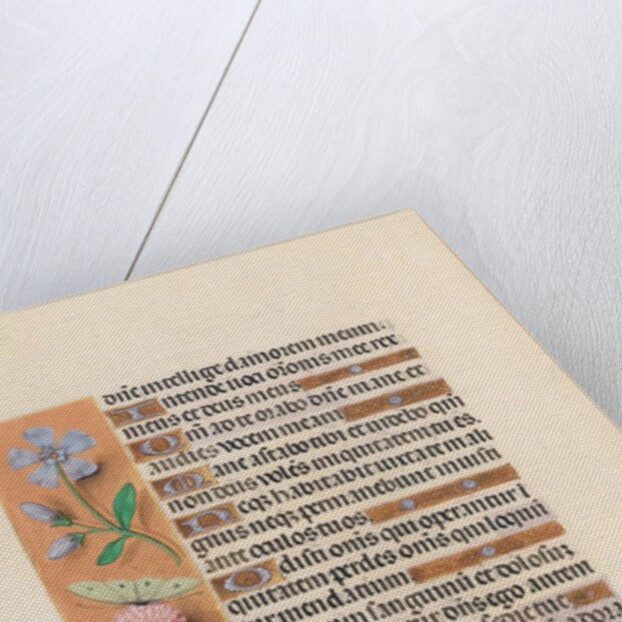 dñe intellige clamorem meum.
Intende voci oronis mee rex
meus et deus meus
Qm̃ ad te orabo dñe mane ex
audies vocem meam
Mane astabo tibi et videbo qm̃
non deus volẽs iniquitatem tu es.
Neqz habitabit iuxta te mali
gnus neqz permanebunt iniusti
ante oculos tuos
Odisti oñis qui operantur i
iniquitatem perdes oñis qui loquũ
tur mendatium
sanguinũ et dolosuz
dñs ego autem